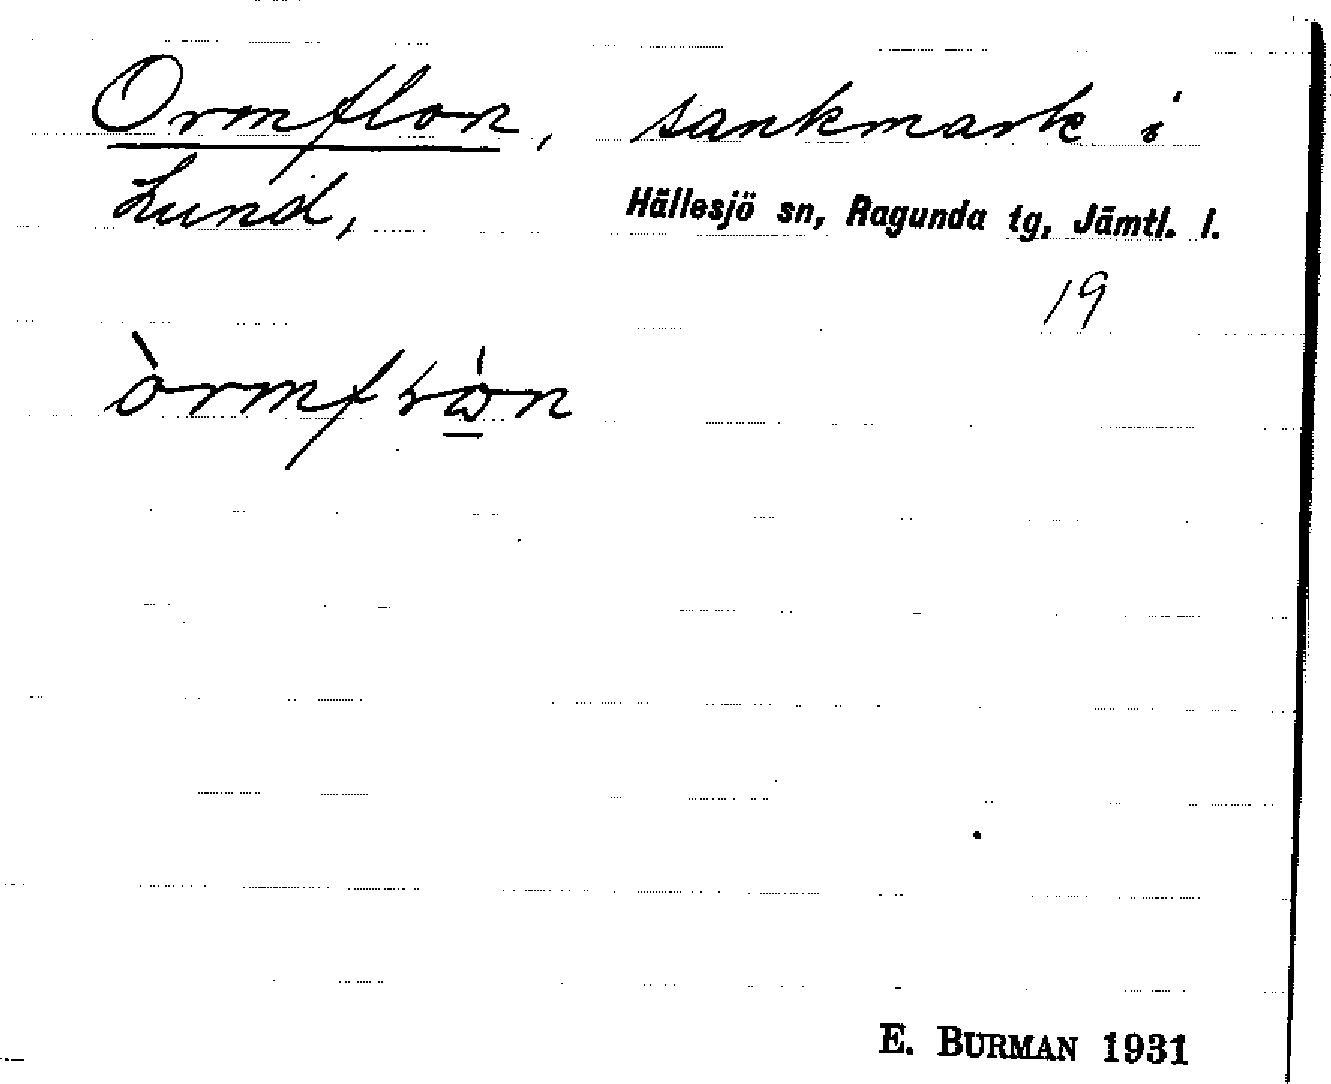 Ormflon, sankmark i
Lund, Hällesjö sn, Ragunda tg, Jämtl. l.
19
E. BURMAN 1931